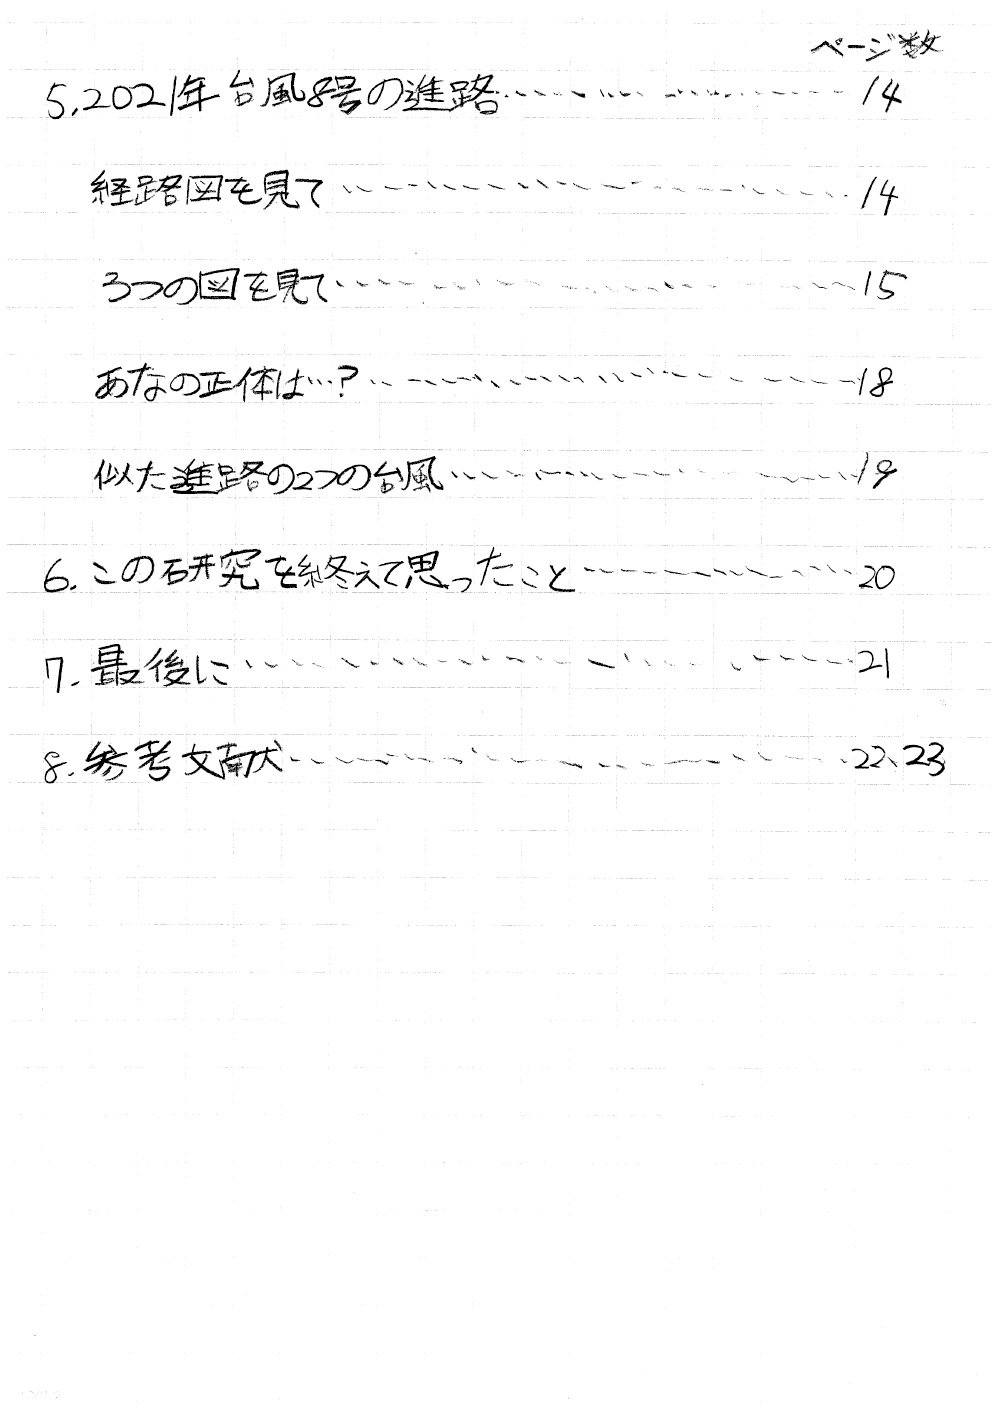 ページ数
5.2021年台風8号の進路……………14
経路図を見て……………14
3つの図を見て……………15
あなの正体は…?……………18
似た進路の2つの台風……………19
6.この研究を終えて思ったこと……………20
7.最後に……………21
8.参考文献……………22、23